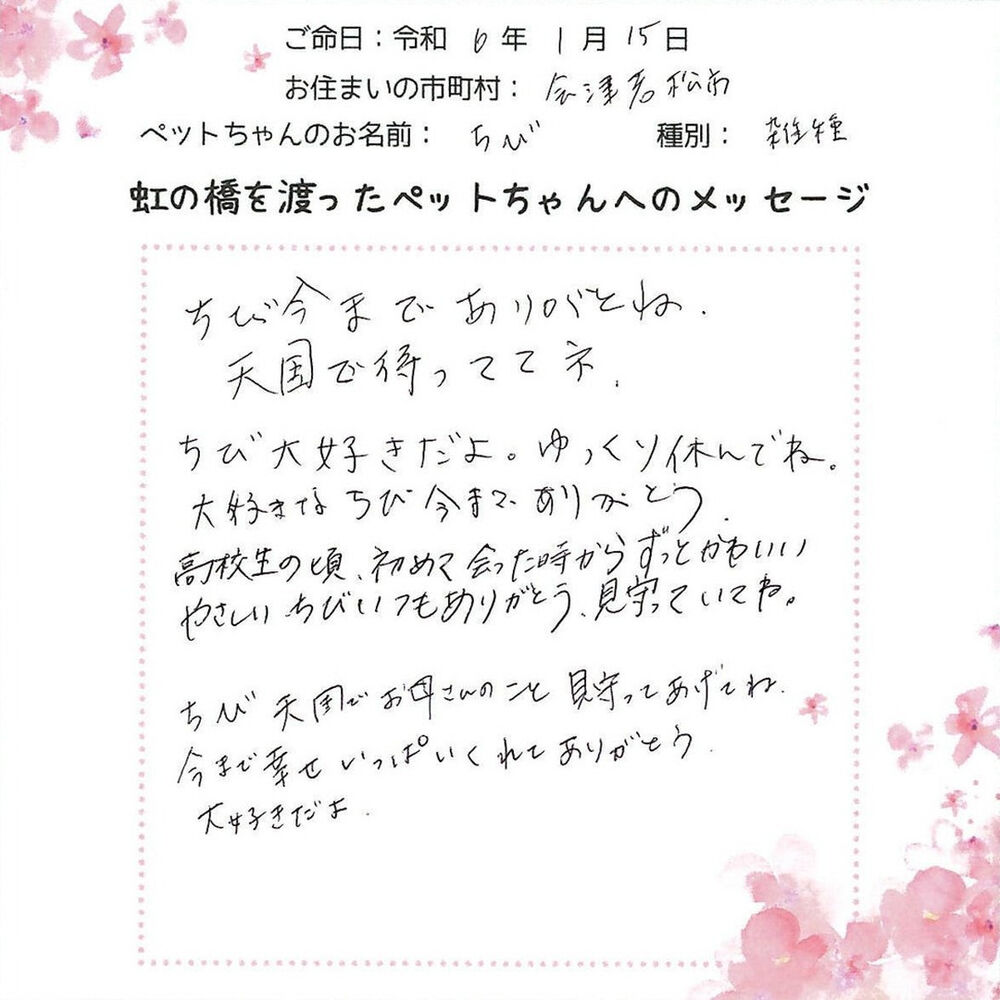 ご命日：令和 6年 1月 15日
お住まいの市町村： 会津若松市
ペットちゃんのお名前： ちび 種別： 雑種
虹の橋を渡ったペットちゃんへのメッセージ
ちび今まで ありがとね.
天国で待っててネ.
ちび大好きだよ。ゆっくり休んでね。
大好きなちび今まで、ありがとう.
高校生の頃、初めて会った時からずっとかわいい
やさしいちびいつもありがとう、見守っていてね。
ちび天国でお母さんのこと見守ってあげてね.
今まで幸せいっぱいくれてありがとう.
大好きだよ.